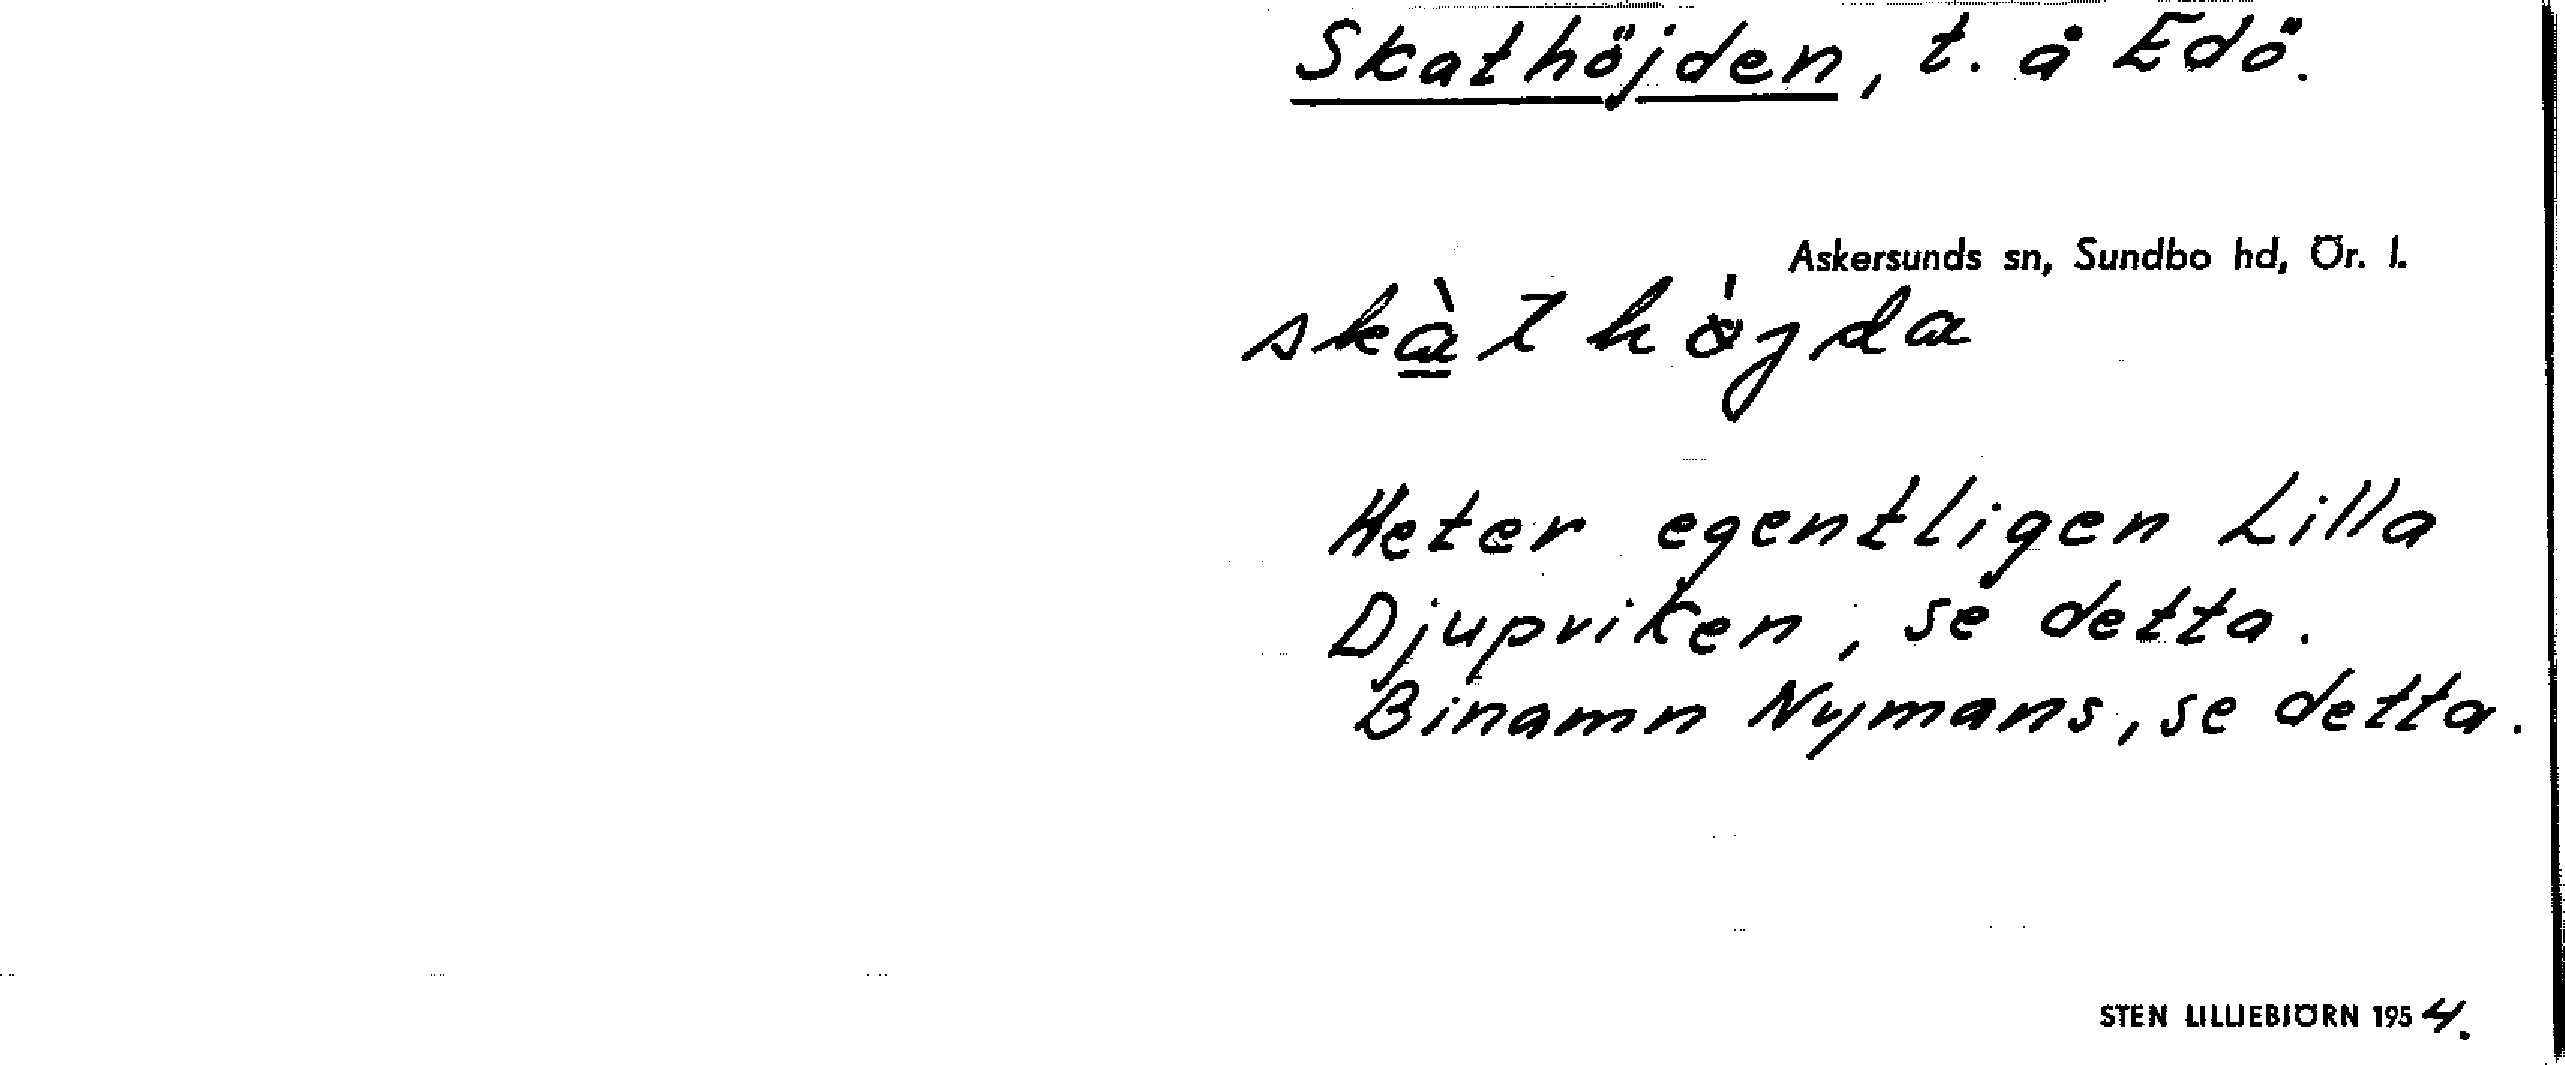 Skathöjden, t. å Edö.
Askersunds sn, Sundbo hd, Ör. l.
skàt höjda
Heter egentligen Lilla
Djupviken, se detta.
Binamn Nymans, se detta.
STEN LILLIEBJÖRN 1954.